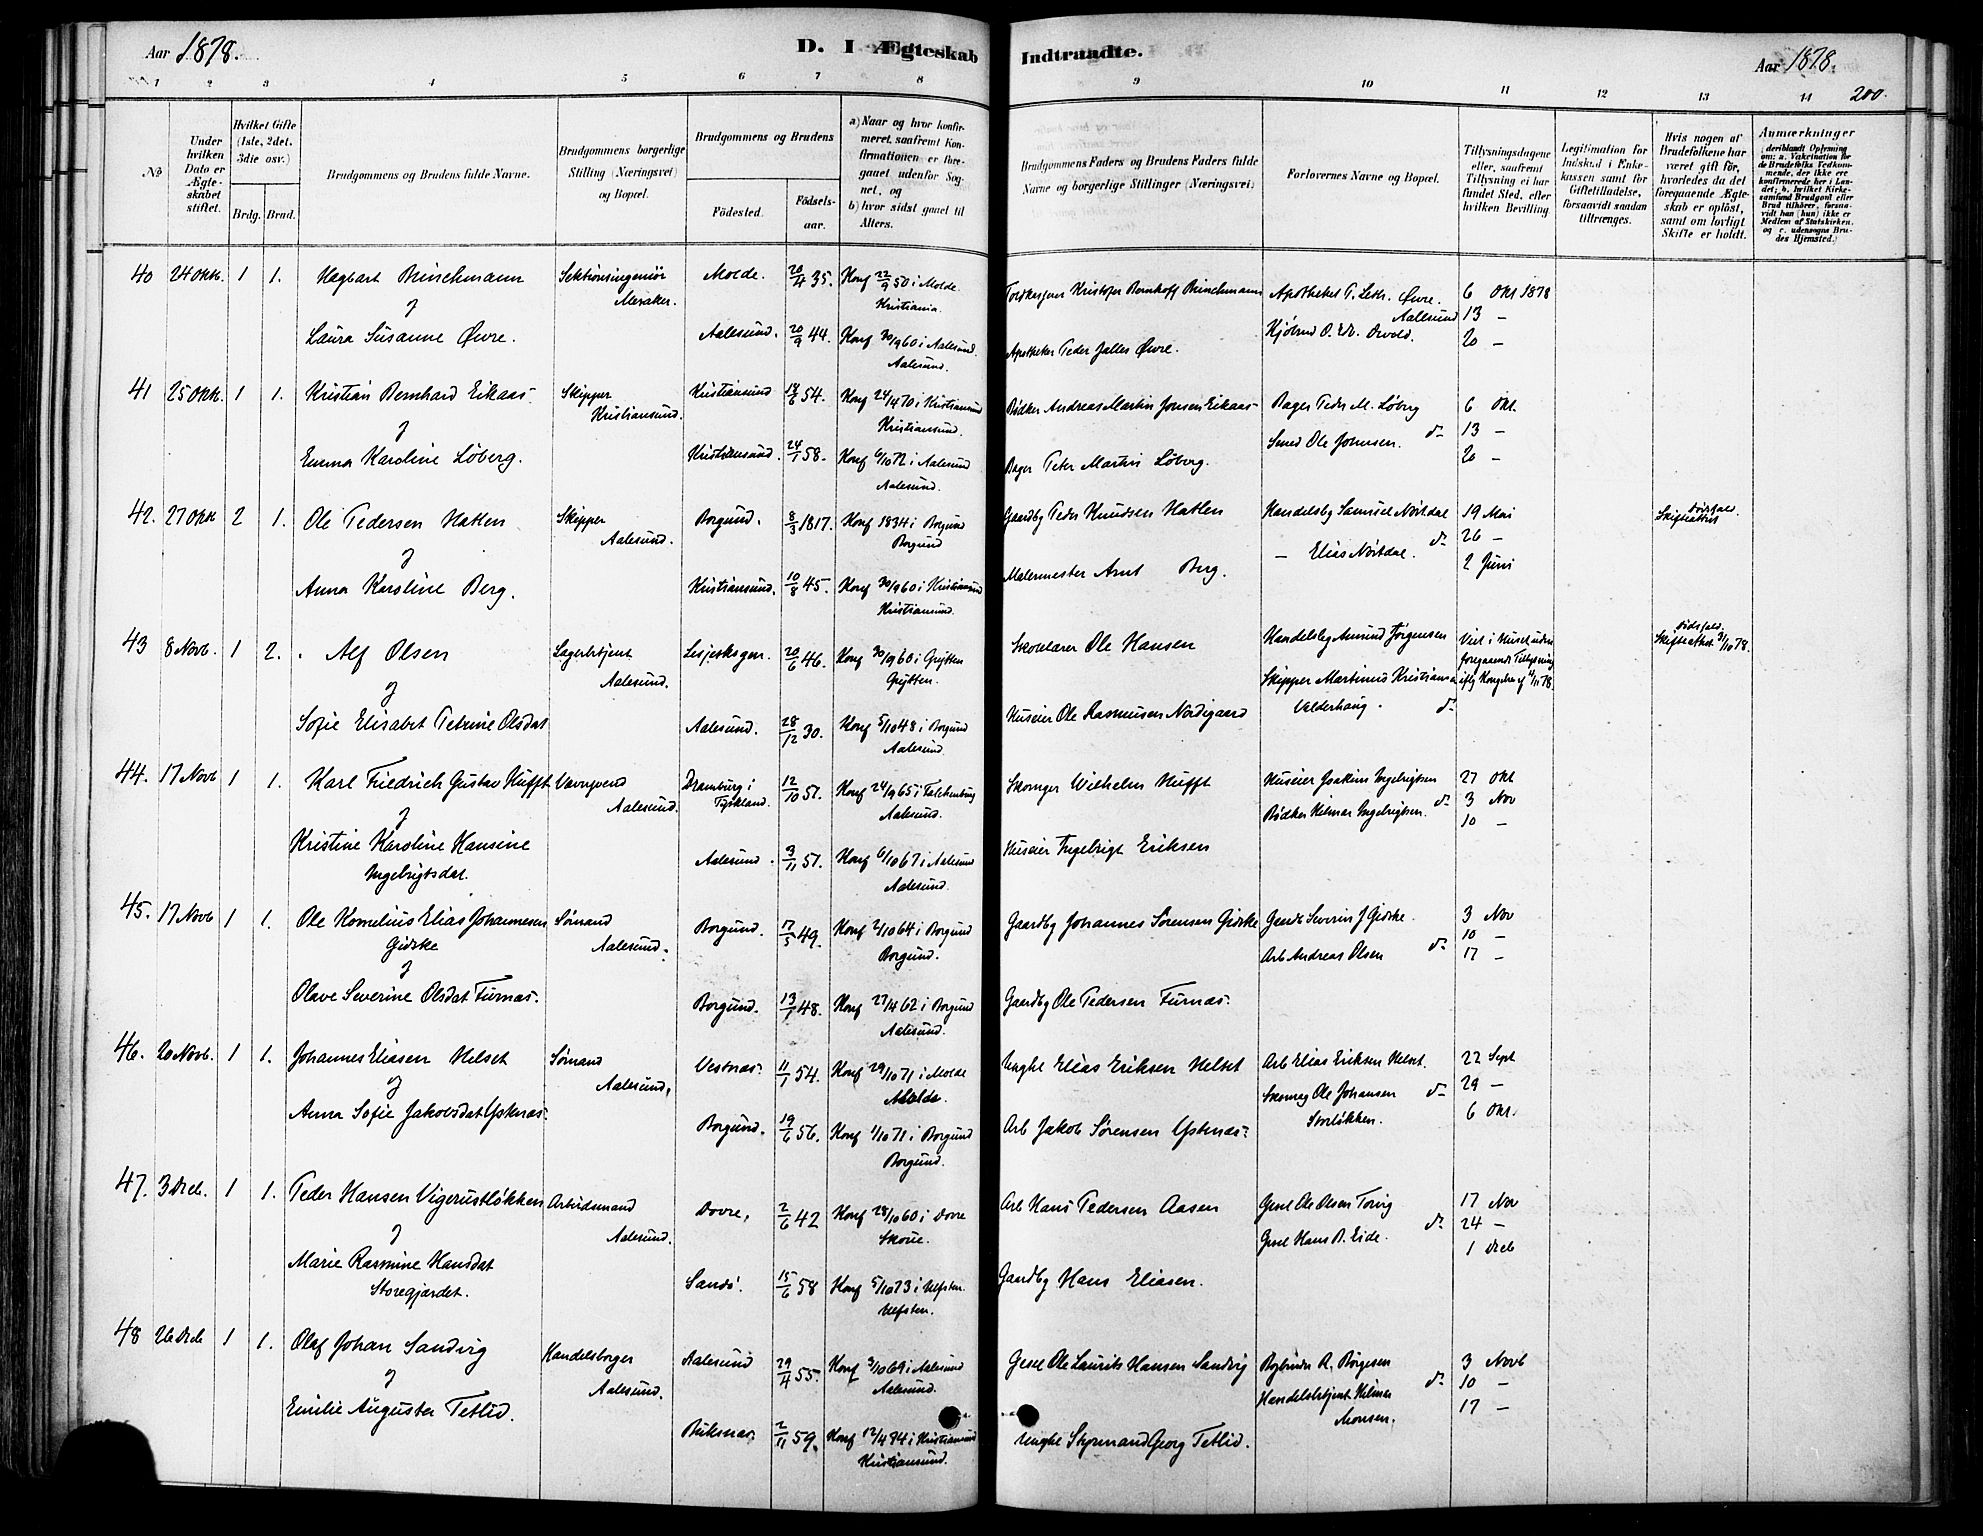 Aar 1878.
D. I Ægteskab Indtraadte.
Aar 1878.
200.
1 2 3 4 5 6 7 8 9 10 11 12 13 14
No
Under hvilken Dato er Ægteskabet stiftet.
Hvilket Gifte (1ste, 2det, 3die osv.)
Brdg. Brud.
Brudgommens og Brudens fulde Navne.
Brudgommens borgerlige Stilling (Næringsvei) og Bopæl.
Brudgommens og Brudens
Fødested.
Fødselsaar.
a) Naar og hvor konfirmeret, saafremt Konfirmationen er foregaaet udenfor Sognet, og
b) hvor sidst gaaet til Alters.
Brudgommens Faders og Brudens Faders fulde Navne og borgerlige Stillinger (Næringsvei)
Forlovernes Navne og Bopæl.
Tillysningsdagene eller, saafremt Tillysning ei har fundet Sted, efter hvilken Bevilling.
Legitimation for Indskud i Enkekassen samt for Giftetilladelse, forsaavidt saadan tiltrænges.
Hvis nogen af Brudefolkene har været gift før, hvorledes da det foregaaende Ægteskab er opløst, samt om lovligt Skifte er holdt.
Anmærkninger (deriblandt Oplysning om: a. Vakcination for de Brudefolks Vedkommende, der ikke ere konfirmerede her i Landet; b. hvilket Kirkesamfund Brudgom eller Brud tilhører, forsaavidt han (hun) ikke er Medlem af Statskirken, og c. udensogns Brudes Hjemsted.)
40 24 Okt. 1 1. Hagbart Brinchmann Sektionsingeniør Molde. 20/4 35. Konf 22/9 50 i Molde.
og Meraker. Kristiania.
Laura Susanne Øvre. Aalesund. 20/9 44. Konf 30/9 60 i Aalesund.
Aalesund.
Kristofer Bernhoff Brinchmann Apotheker P. Leth. Øvre. 6 Okt 1878
Aalesund 13 –
Apotheker Peder Jalles Øvre. 20 –
41 25 Okt. 1 1. Kristian Bernhard Eikaas Skipper Kristiansund 14/6 54. Konf 24/4 70 i Kristiansund
og Kristiansund. Kristiansund.
Emma Karoline Løberg. Kristiansund. 24/1 58. Konf 6/10 72 i Aalesund
Aalesund.
Bødker Andreas Martin Jonsen Eikaas Bager Peder M. Løberg 6 Okt.
Smed Ole Johnsen. do 13 –
Bager Peter Martin Løberg. 20 –
42. 27 Okt 2 1. Ole Pedersen Hatlen Skipper Borgund. 8/3 1817. Konf 1834 i Borgund
og Aalesund. Borgund
Anna Karoline Berg. Kristiansund. 10/8 45. Konf 30/9 60 i Kristiansund
Kristiansund.
Gaardbr Peder Knudsen Hatlen Handelsbg Samuel Nørdal 19 Mai Dødsfald.
– Elias Nørdal. do 26 – Skifteattest
Malermester Arnt Berg. 2 Juni
43 8 Novb. 1 2. Alf Olsen Lagerbetjent Lesjeskogen. 20/6 46. Konf 30/9 60 i Grytten
og Aalesund. Grytten.
Sofie Elisabet Petrine Olsdat Aalesund. 28/12 30. Konf 5/10 48 i Borgund
Aalesund.
Skolelærer Ole Hansen Handelsbg Amund Jørgensen Viet i Huset uden Dødsfald.
foregaaende Tillysning Skifteattest 31/10 78.
Skipper Martinus Kristiansen
Huseier Ole Rasmusen Nordigaard Valderhaug. do
44. 17 Novb 1 1. Karl Friedrich Gustav Hufft Væversvend Dramburg i 12/10 51. Konf 24/9 65 i Falckenburg
og Aalesund. Tyskland. Aalesund.
Kristine Karoline Hansine Aalesund. 3/11 51. Konf 6/10 67 i Aalesund
Ingebrigtsdat. Aalesund.
Skomger Wilhelm Hufft Huseier Joakim Ingebrigtsen 27 Okt
Bødker Helmer Ingebrigtsen. do 3 Nov
Huseier Ingebrigt Eriksen 10 –
45. 17 Novb 1 1. Ole Kornelius Elias Johannesen Sømand Borgund. 17/5 49. Konf 2/10 64 i Borgund
Giske Aalesund. Borgund.
og
Olave Severine Olsdat Furnæs. Borgund. 13/1 48. Konf 27/4 62 i Borgund
Aalesund.
Gaardbg Johannes Sørensen Giske Severin J Giske. 3 Nov
10 –
Arb Andreas Olsen do 17 –
Gaardbg Ole Pedersen Furnæs.
46. 20 Novb. 1 1. Johannes Eliasen Helset Sømand Vestnæs. 11/1 54. Konf 29/10 71 i Molde
og Aalesund. Molde.
Anna Sofie Jakobsdat Ystenæs. Borgund. 19/6 56. Konf 1/10 71 i Borgund
Borgund.
Ungk Elias Eriksen Helset Arb Elias Eriksen Helset. 22 Sept
Skomag Ole Johansen do 29 –
Arb Jakob Sørensen Ystenæs. Storløkken. 6 Okt.
47. 3 Dcb. 1 1. Peder Hansen Vigerustløkken Arbeidsmand Dovre, 2/6 42 Konf 28/10 60 i Dovre
og Aalesund. Skoue.
Marie Rasmine Hansdat Sandø. 15/6 58 Konf 5/10 73 i Ulfsten.
Storegjærdet. Ulfsten.
Arb Hans Pedersen Aasen Gesel Ole Olsen Toring 17 Nov
Gesel Hans B. Eide. do 24 –
Gaardbg Hans Eliasen. 1 Dcb
48 26 Dcb 1 1. Olaf Johan Sandvig Handelsborger Aalesund 29/4 55. Konf 3/10 69 i Aalesund
og Aalesund. Aalesund.
Emilie Augusta Tetlid. Buksnæs. 2/11 59. Konf 12/4 74 i Kristiansund
Kristiansund.
Gesel Ole Laurits Hansen Sandvig Bogbinder R. Børgesen 3 Novb
Handelsbetjent Helmer do 10 –
Monsen. 17 –
Styrmand Georg Tetlid.